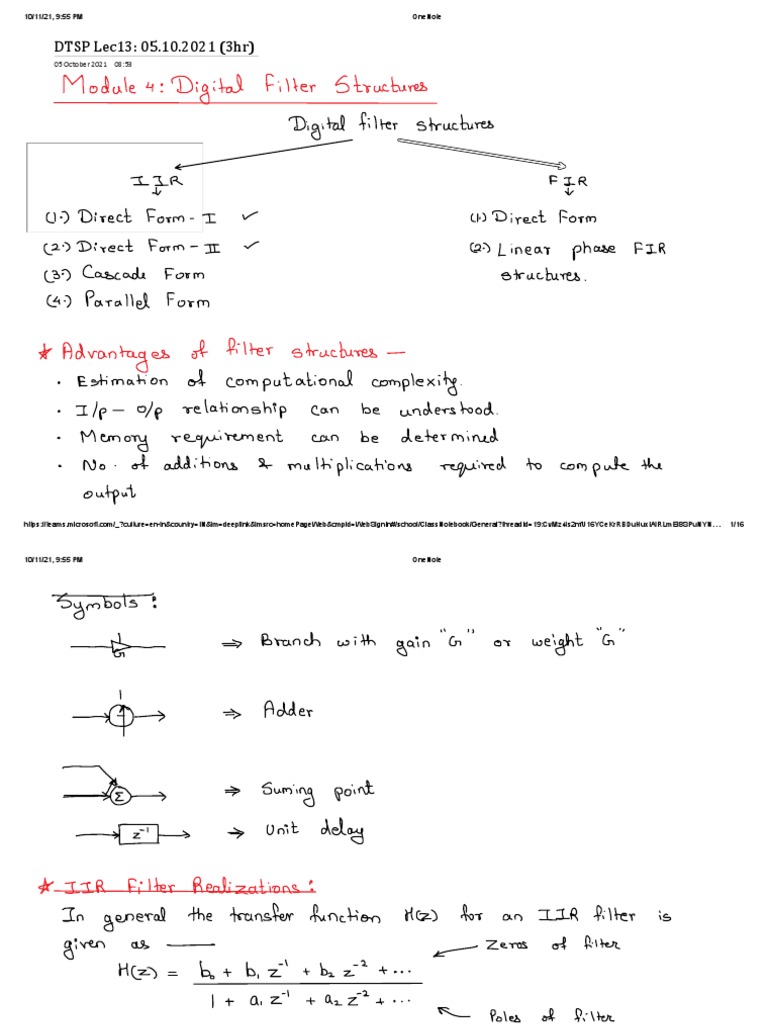 10/11/21, 9:55 PM OneNote
DTSP Lec13: 05.10.2021 (3hr)
05 October 2021 08:53
Module 4: Digital Filter Structures
Digital filter structures
IIR FIR
(1.) Direct Form - I ✓ (1.) Direct Form
(2.) Direct Form - II ✓ (2.) Linear phase FIR
(3.) Cascade Form structures.
(4.) Parallel Form
* Advantages of filter structures —
· Estimation of computational complexity.
· I/p - o/p relationship can be understood.
· Memory requirement can be determined
· No. of additions & multiplications required to compute the
output
1/16
10/11/21, 9:55 PM OneNote
Symbols:
G ⇒ Branch with gain "G" or weight "G"
⇒ Adder
Σ ⇒ Suming point
z⁻¹ → Unit delay
* IIR Filter Realizations:
In general the transfer function H(z) for an IIR filter is
given as —
Zeros of filter
H(z) = b₀ + b₁ z⁻¹ + b₂ z⁻² + ...
1 + a₁ z⁻¹ + a₂ z⁻² + ...
Poles of filter